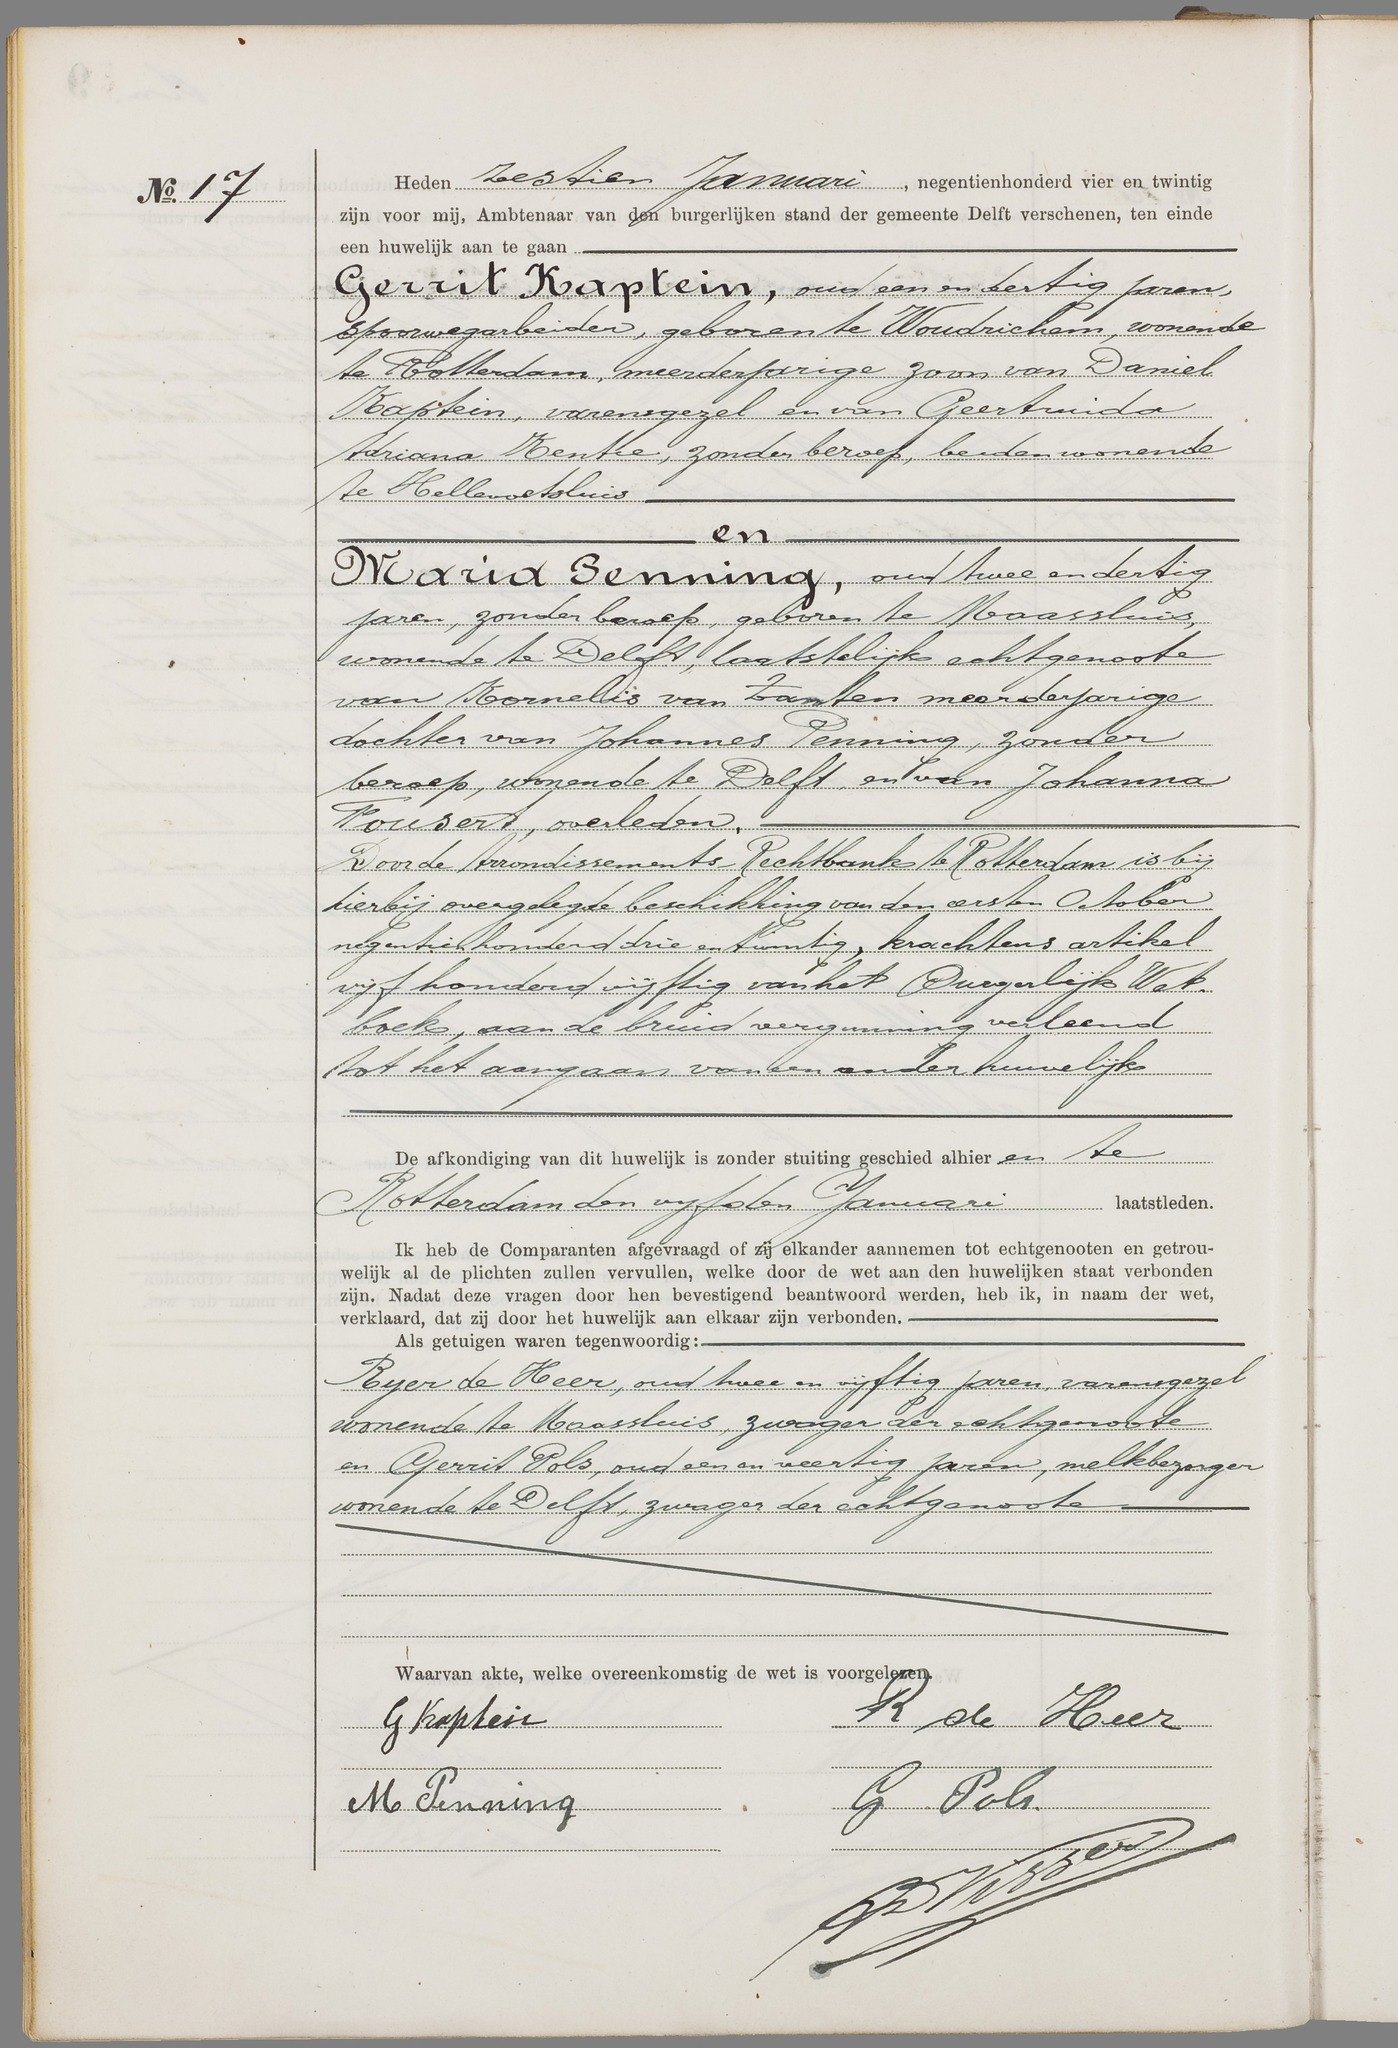 No. 17
Heden zestien Januari, negentienhonderd vier en twintig
zijn voor mij, Ambtenaar van den burgerlijken stand der gemeente Delft verschenen, ten einde
een huwelijk aan te gaan
Gerrit Kaptein, oud een en dertig jaren,
spoorwegarbeider, geboren te Woudrichem, wonende
te Rotterdam, meerderjarige zoon van Daniel
Kaptein, varensgezel en van Geertruida
Adriana Kentie, zonder beroep, beiden wonende
te Hellevoetsluis
en
Maria Penning, oud twee en dertig
jaren, zonder beroep, geboren te Maassluis,
wonende te Delft, laatstelijk echtgenoote
van Kornelis van Zanten meerderjarige
dochter van Johannes Penning, zonder
beroep, wonende te Delft, en van Johanna
Fousert, overleden.
Door de Arrondissements Rechtbank te Rotterdam is bij
hierbij overgelegde beschikking van den eersten October
negentienhonderd drie en twintig, krachtens artikel
vijf honderd vijftig van het Burgerlijk Wet-
boek, aan de bruid vergunning verleend
tot het aangaan van een ander huwelijk
De afkondiging van dit huwelijk is zonder stuiting geschied alhier en te
Rotterdam den vijfden Januari laatstleden.
Ik heb de Comparanten afgevraagd of zij elkander aannemen tot echtgenooten en getrou-
welijk al de plichten zullen vervullen, welke door de wet aan den huwelijken staat verbonden
zijn. Nadat deze vragen door hen bevestigend beantwoord werden, heb ik, in naam der wet,
verklaard, dat zij door het huwelijk aan elkaar zijn verbonden.
Als getuigen waren tegenwoordig:
Ryer de Heer, oud twee en vijftig jaren, varensgezel
wonende te Maassluis, zwager der echtgenoote
en Gerrit Pols, oud een en veertig jaren, melkbezorger
wonende te Delft, zwager der echtgenoote
Waarvan akte, welke overeenkomstig de wet is voorgelezen.
G Kaptein R de Heer
M Penning G Pols.
Visser